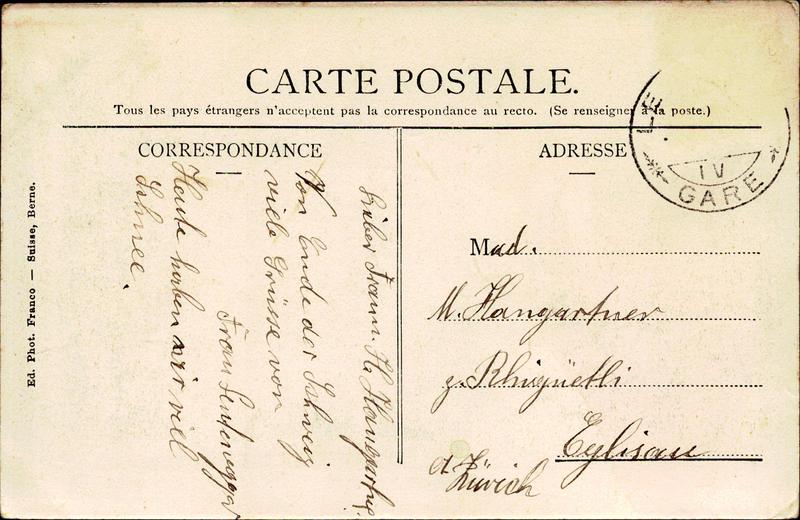 CARTE POSTALE.
Tous les pays étrangers n'acceptent pas la correspondance au recto. (Se renseigner à la poste.)
CORRESPONDANCE
Frau
Von Ende der Schweiz
viele Grüsse von
Frau
Heute haben wir viel
Schnee.
Ed. Phot. Franco — Suisse, Berne.
ADRESSE
IV
GARE
Mad.
M. Hangartner
z. Rhigüetli
Eglisau
Zürich